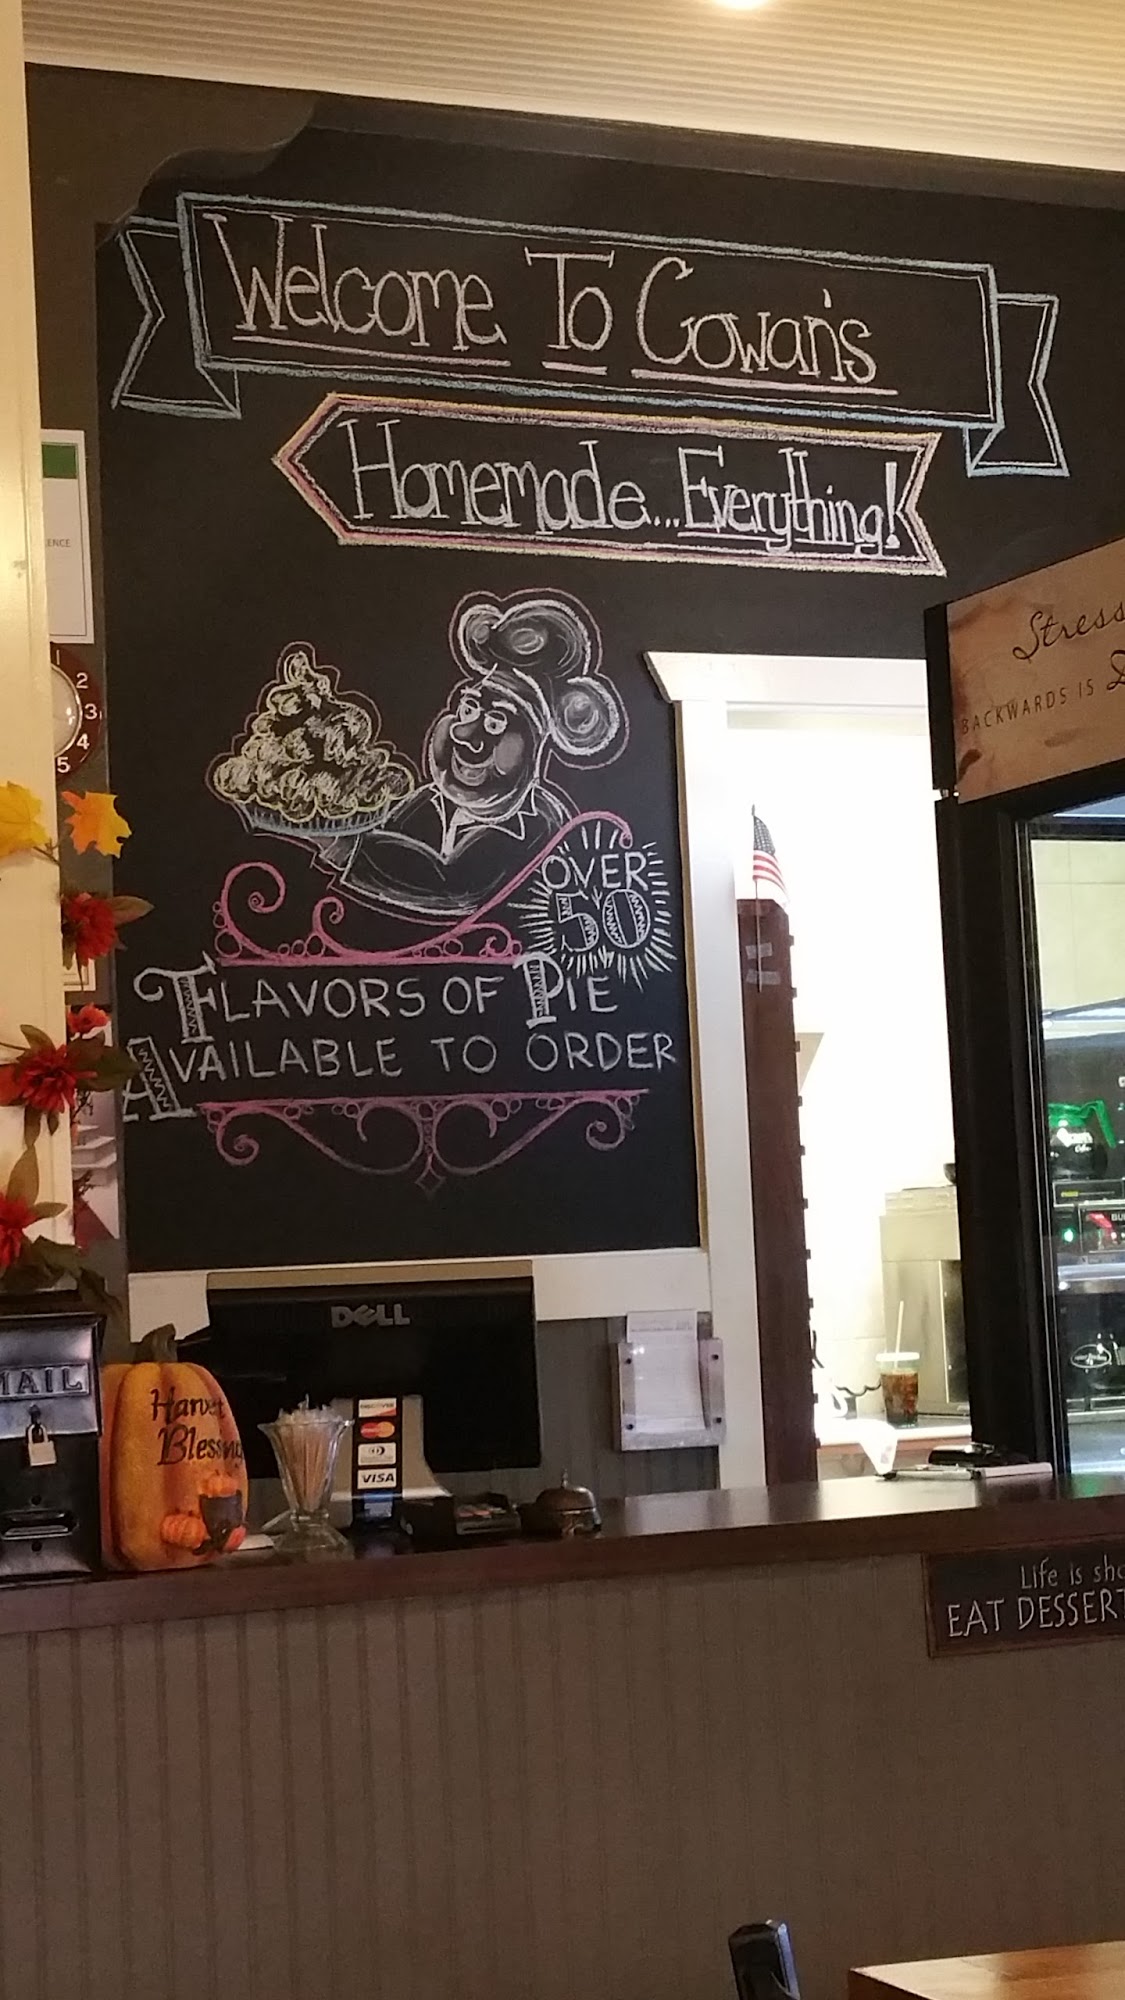 Welcome To Cowan's
Homemade... Everything!
OVER
50
FLAVORS OF PIE
AVAILABLE TO ORDER
Stress
BACKWARDS IS
2
3
4
5
DELL
MAIL
Harvest
Blessings
DISCOVER
MasterCard
VISA
Life is
EAT DESSERT